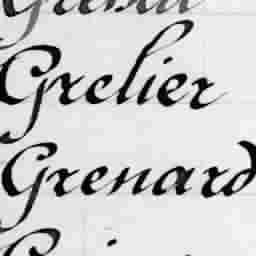 Grelier
Grenard